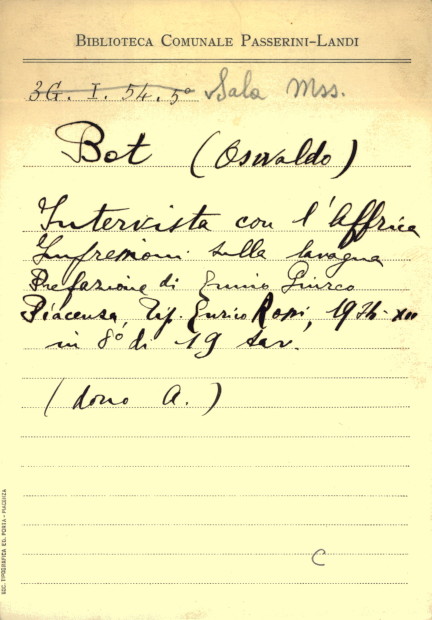 BIBLIOTECA COMUNALE PASSERINI-LANDI
3G. I. 54. 5° Sala Mss.
Bot (Osvaldo)
Intervista con l'Affrica
Impressioni sulla lavagna
Prefazione di Ennio
Piacenza, Tip. Enrico Rossi, 1934-XII
in 8° di 19 tav.
(dono A.)
C
SOC. TIPOGRAFICA ED. PORTA - PIACENZA